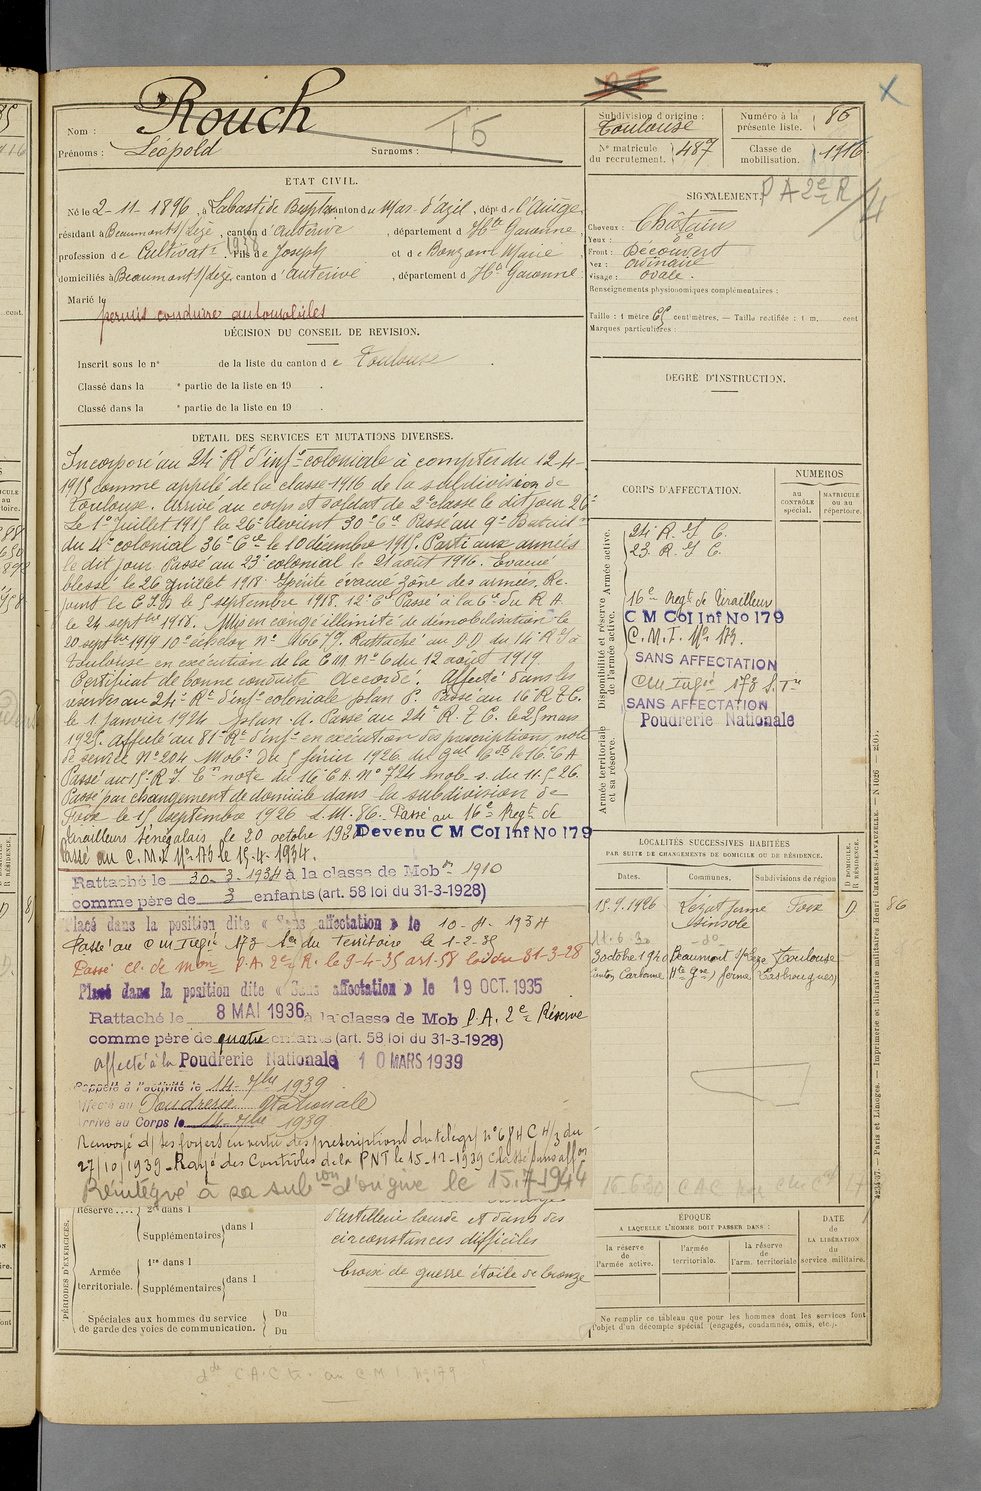 Rouch
Nom :
Prénoms : Léopold
Surnoms :
15
ÉTAT CIVIL.
Né le 2-11-1896, à Labastide canton du Mas-d'azil, dépt de l'Ariège,
résidant à Beaumont s/ Lèze, canton d'auterive, département d Hte Garonne,
profession de Cultivatr 1938, fils de Joseph et de Marie
domiciliés à Beaumont s/lèze, canton d'auterive, département d Hte Garonne.
Marié le
permis conduire automobiles
DÉCISION DU CONSEIL DE REVISION.
Inscrit sous le n° de la liste du canton de Toulouse.
Classé dans la e partie de la liste en 19 .
Classé dans la e partie de la liste en 19 .
DÉTAIL DES SERVICES ET MUTATIONS DIVERSES.
Incorporé au 24e Rt d'infie coloniale à compter du 12-4-
1915 comme appelé de la classe 1916 de la subdivision de
Toulouse. Arrivé au corps et soldat de 2e classe le dit jour 26e
Le 1er Juillet 1915 la 26e devient 30e Cie Passé au 9e Bataillon
du 4e colonial 36e Cie le 10 décembre 1915. Parti aux armées
le dit jour. Passé au 23e colonial le 21 août 1916. Evacué
blessé le 26 Juillet 1918. Ypérité évacué zône des armées. Re-
joint le C.I.D le 5 septembre 1918. 12e Cie Passé à la 6e du R A
le 24 septbre 1918. Mis en congé illimité de démobilisation le
20 septbre 1919 10e échelon n° Rattaché au DD du 14e R I à
Toulouse en exécution de la C.M. n° 6 du 12 août 1919.
Certificat de bonne conduite Accordé. Affecté dans les
réserves au 24e Rt d'infie coloniale plan P. Passé au 16e R.T.C.
le 1 janvier 1924 plan. A. Passé au 24e R.T.C. le 25 mars
1925. Affecté au 81e Rt d'infie en exécution des prescriptions note
de service N° 204 Mobon du 5 février 1926. du 16e C A
Passé au 15e R.I. Con note du 16e C A. N° 724 mob. s. du 11.5.26.
Passé par changement de domicile dans la subdivision de
Foix le 15 septembre 1926 s.M. 86. Passé au 16e Regt de
tirailleurs Sénégalais le 20 octobre 193 Devenu C M Col Inf No 179
Passé au C.M.I. No 173 le 15-4-1934.
Rattaché le 30-3-1934 à la classe de Mobon 1910
comme père de 3 enfants (art. 58 loi du 31-3-1928)
Placé dans la position dite « Sans affectation » le 10-4-1934
Passé au C M Infie 173 Son du Territoire le 1-2-35
Passé cl. de mon P.A. 2e R. le 9-4-35 art. 58 loi du 31-3-28
Placé dans la position dite « Sans affectation » le 19 OCT. 1935
Rattaché le 8 MAI 1936 à la classe de Mob P.A. 2e Réserve
comme père de quatre enfants (art. 58 loi du 31-3-1928)
affecté à la Poudrerie Nationale 10 MARS 1939
Rappelé à l'activité le 14-7bre 1939
Affecté au Poudrerie Nationale
Arrivé au Corps le 14-7bre 1939
Renvoyé d/ ses foyers en vertu des prescriptions du télégr n° 684 C H/3 du
27/10/1939 - Rayé des Contrôles de la PNT le 15-12-1939 classé sans affon
Réintégré à sa subon d'origine le 15.7.1944
d'artillerie lourde et dans des
circonstances difficiles
Croix de guerre étoile de bronze
PÉRIODES D'EXERCICES.
Réserve.... 2e dans l
Supplémentaires dans l
Armée territoriale. 1re dans l
Supplémentaires dans l
Spéciales aux hommes du service
de garde des voies de communication. Du
Du
Subdivision d'origine : Toulouse
Numéro à la présente liste. 86
N° matricule du recrutement. 487
Classe de mobilisation. 1916
P A 2e R
SIGNALEMENT.
Cheveux : Châtain
Yeux :
Front : Découvert
Nez : ordinaire
Visage : ovale.
Renseignements physionomiques complémentaires :
Taille : 1 mètre 65 centimètres. — Taille rectifiée : 1 m. cent
Marques particulières :
DEGRÉ D'INSTRUCTION.
CORPS D'AFFECTATION.
NUMÉROS
au CONTRÔLE spécial.
MATRICULE ou au répertoire.
Armée active.
24 R. I. C.
23. R. I C.
Disponibilité et réserve de l'armée active.
16e Regt de Tirailleurs
C M Col Inf No 179
C. M. I. No 173.
SANS AFFECTATION
CM Infie 173 S. Tre
SANS AFFECTATION
Poudrerie Nationale
Armée territoriale et sa réserve.
LOCALITÉS SUCCESSIVES HABITÉES
PAR SUITE DE CHANGEMENTS DE DOMICILE OU DE RÉSIDENCE.
Dates.
Communes,
Subdivisions de région
D DOMICILE. R RÉSIDENCE.
15.9.1926 Lézat ferme Foix D. 86
11.6.30 -do-
3 octobre 1940 Beaumont s/ Lèze Toulouse
Canton Carbonne Hte Gne) ferme
ÉPOQUE
A LAQUELLE L'HOMME DOIT PASSER DANS :
la réserve de l'armée active.
l'armée territoriale.
la réserve de l'arm. territoriale
DATE de LA LIBÉRATION du service militaire.
Ne remplir ce tableau que pour les hommes dont les services font
l'objet d'un décompte spécial (engagés, condamnés, omis, etc.).
Paris et Limoges. — Imprimerie et librairie militaires Henri CHARLES-LAVAUZELLE.
C.A.C. au C M I No 179